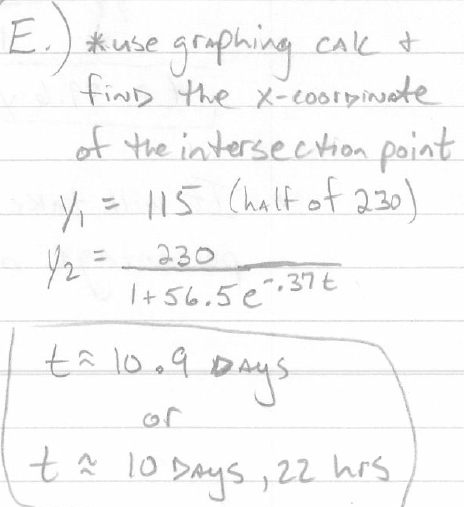 E.) *use graphing calc &
find the x-coordinate
of the intersection point
y₁ = 115 (half of 230)
y₂ = 230 / 1+56.5e^-.37t
t ≈ 10.9 DAYS
or
t ≈ 10 DAYS, 22 hrs